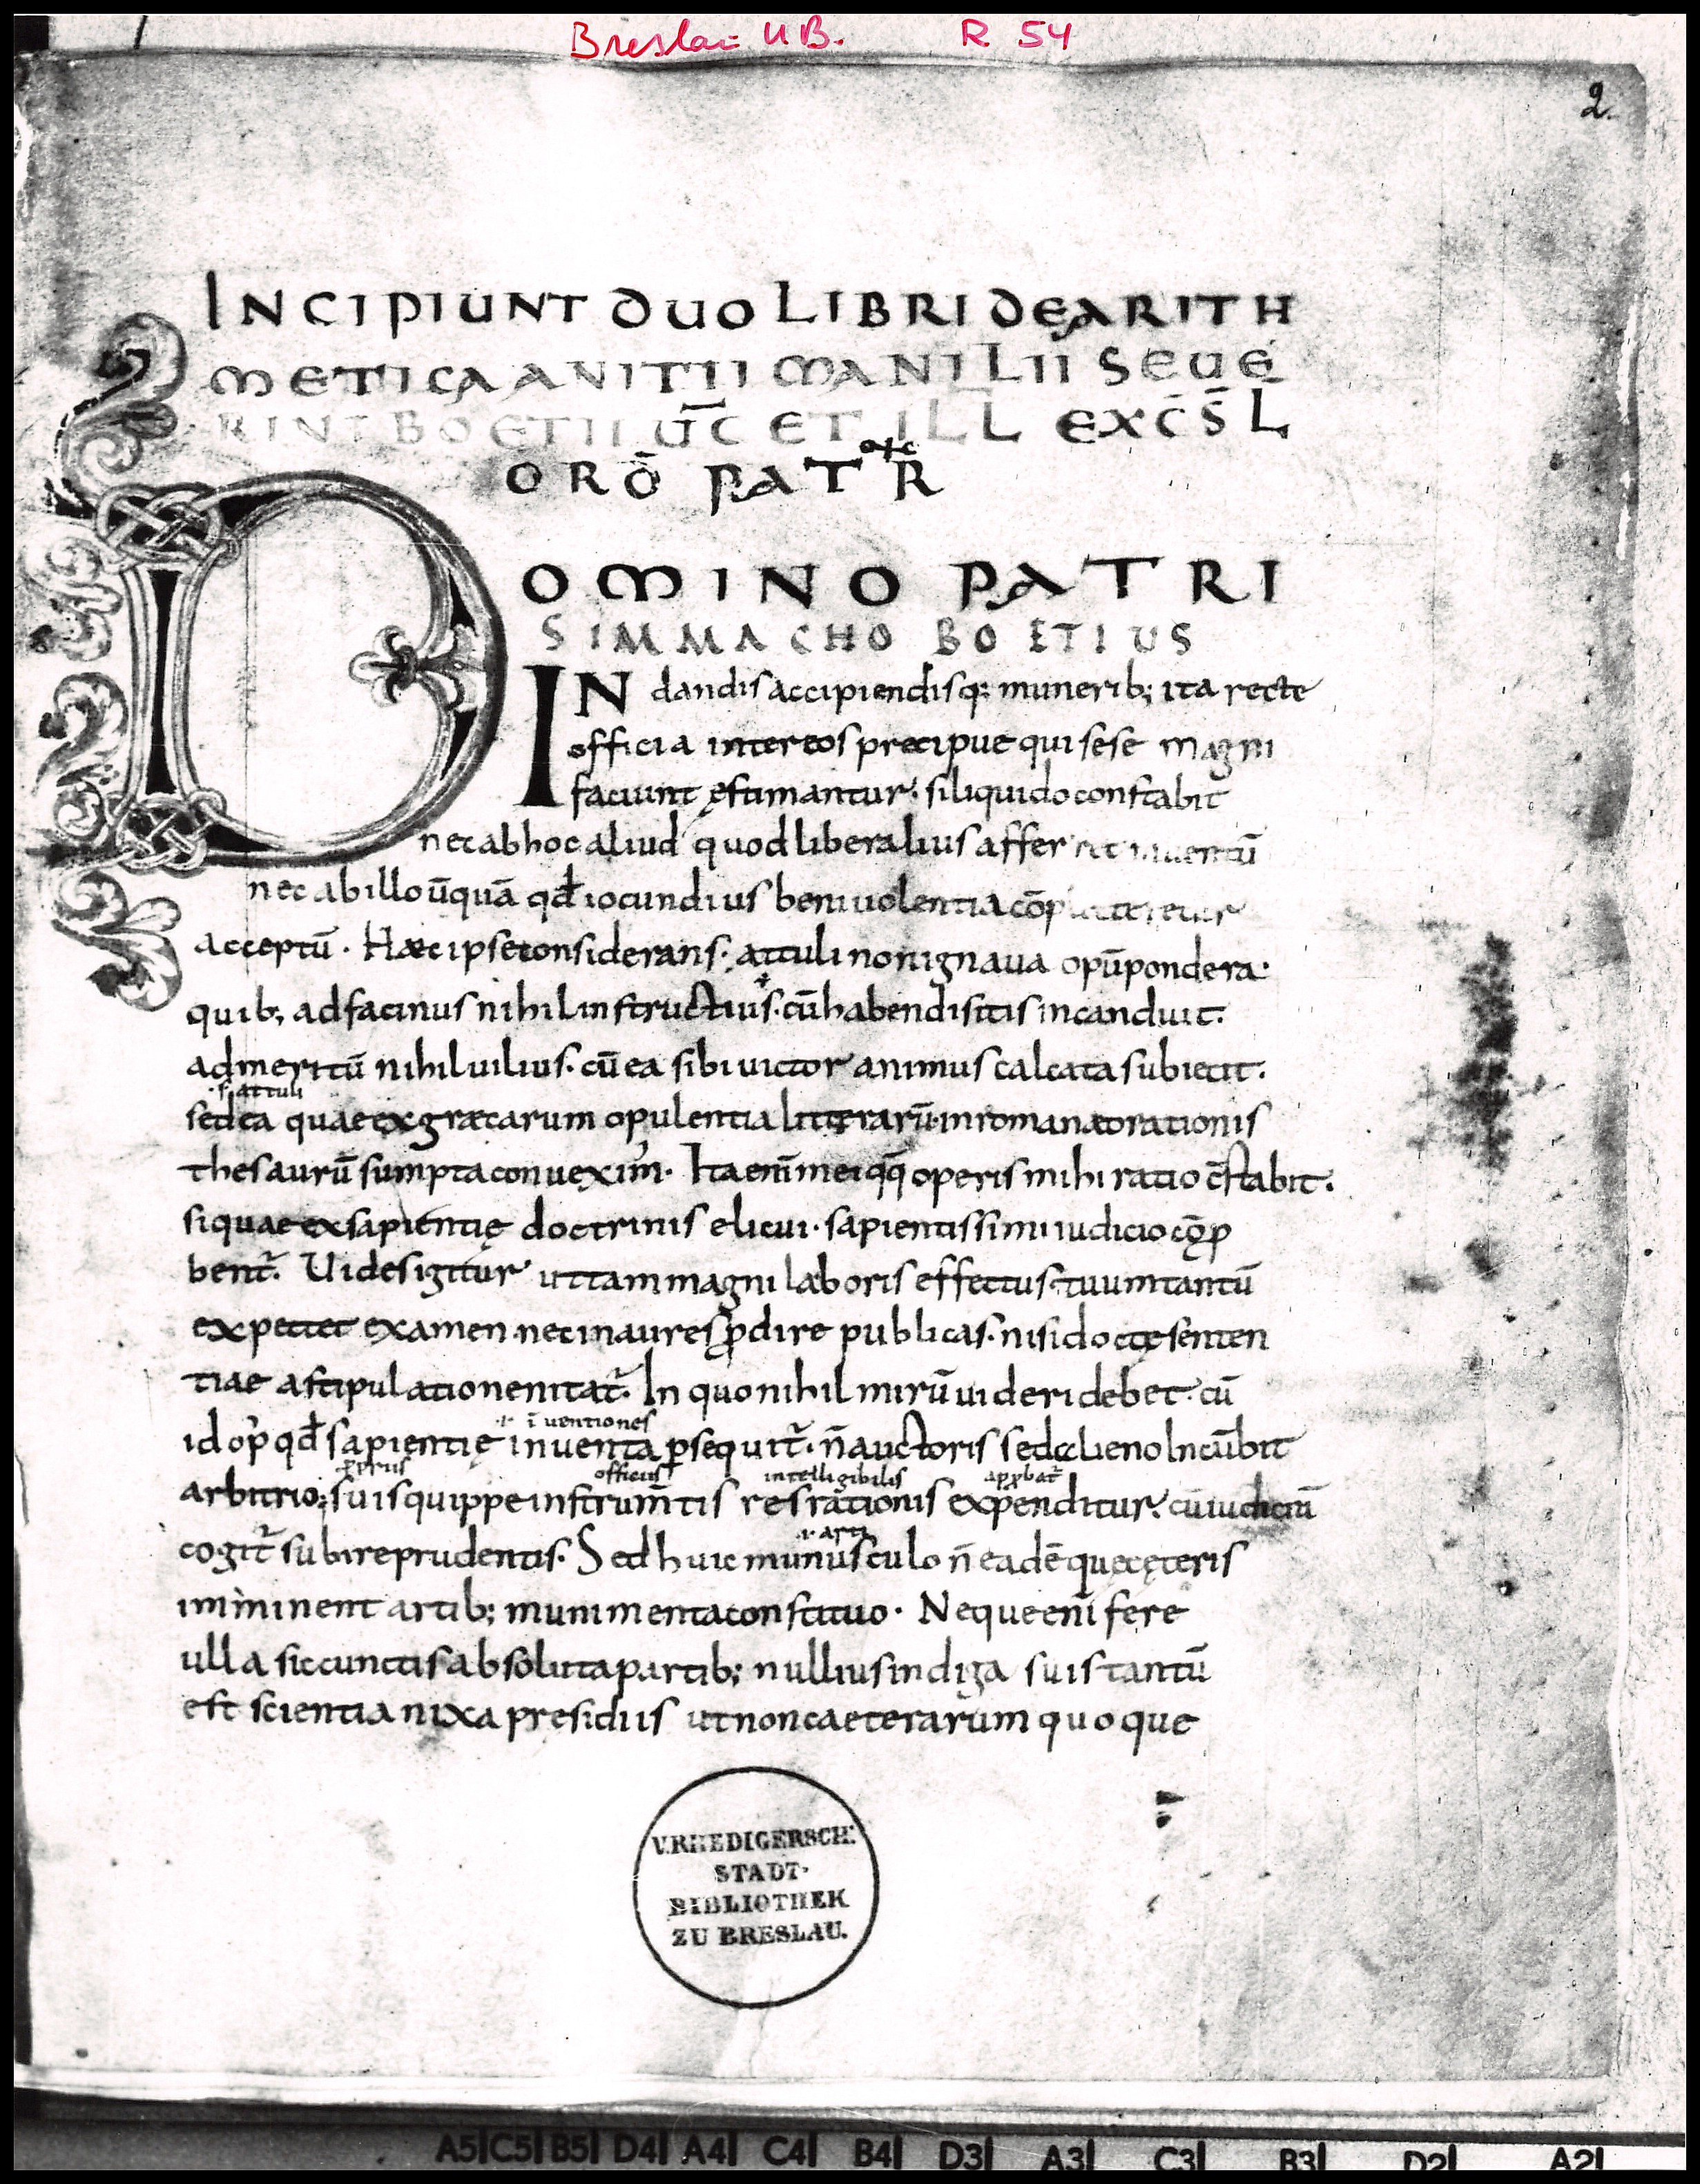 Breslau UB. R 54
2.
INCIPIUNT DUO LIBRI DE ARITH
METICA ANITII MANILII SEUE
RINI BOETII U̅C̅ ET ILL EXC̅S̅L
ORD̅ PATR̅
DOMINO PATRI
SIMMACHO BOETIUS
IN dandis accipiendisq; munerib; ita recte
officia inter eos precipue qui sese magni
faciunt ęstimantur. si liquido constabit
nec ab hoc aliud quod liberalius afferret inuentū
nec ab illo ūquā qđ iocundius beniuolentia
acceptū. Haec ipse considerans. attuli non ignaua opū pondera.
quib; ad facinus nihil instructius. cū habendi sitis incanduit.
ad meritū nihil uilius. cū ea sibi uictor animus calcata subiecit.
.s. attuli
sed ea quae ex grecarum opulentia litterarū in romanae orationis
thesaurū sumpta conueximʼ. Ita enī mei qq̄ operis mihi ratio c̄stabit.
si quae ex sapientię doctrinis elicui. sapientissimi iudicio cōp
bent᷑. Uides igitur ut tam magni laboris effectus. tuum tantū
expectet examen. nec in aures ꝓdire publicas. nisi doctę senten
tiae astipulatione nitat᷑. In quo nihil mirū uideri debet. cū
.i. īuentiones
id opʼ qđ sapientię inuenta ꝑsequit᷑. n̄ auctoris sed alieno Incūbit
ꝓpriis officiis intelligibilis apꝓbat᷑
arbitrio; suis quippe instrum̄tis res rationis expenditur. cū iudiciū
cogit᷑ subire prudentis. Sed huic munusculo n̄ eadē quę cęteris
.i. arti
imminent artib; munimenta constituo. Neque enī fere
ulla sic cunctis absoluta partib; nullius indiga suis tantū
est scientia nixa presidiis ut non caeterarum quoque
V. RHEDIGERSCH:
STADT-
BIBLIOTHEK
ZU BRESLAU.
A5 C5 B5 D4 A4 C4 B4 D3 A3 C3 B3 D2 A2